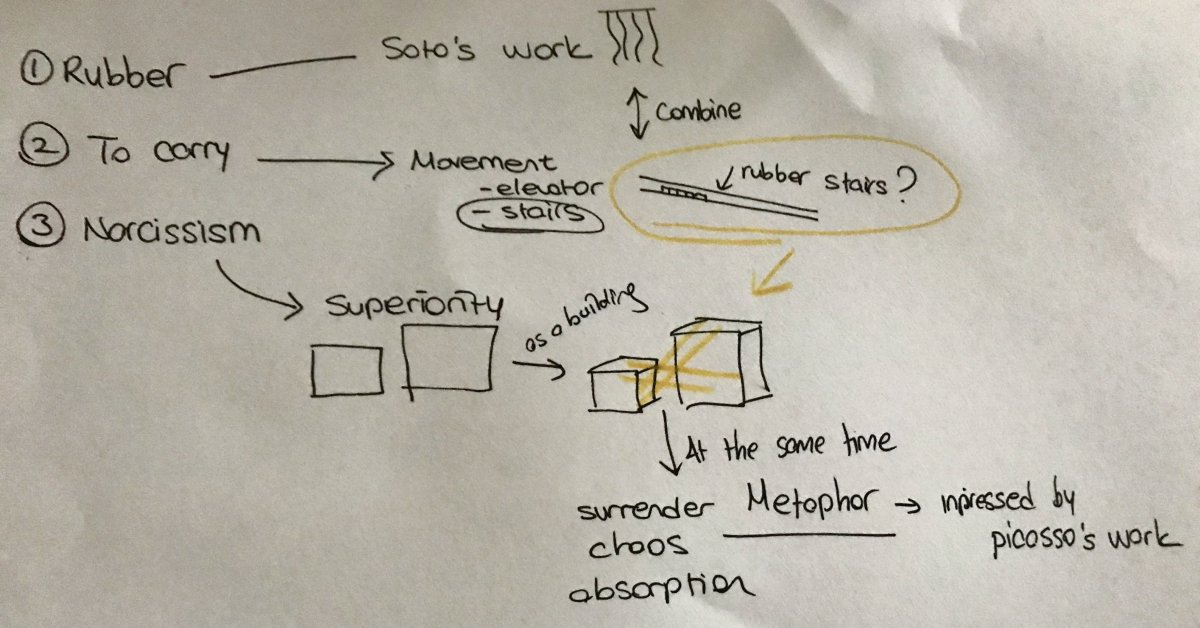 ① Rubber — Soto's work
↕ Combine
② To carry → Movement
- elevator
- stairs
rubber stairs?
③ Narcissism
Superiority
as a building
At the same time
surrender
chaos
absorption
Metaphor → inpressed by
picasso's work